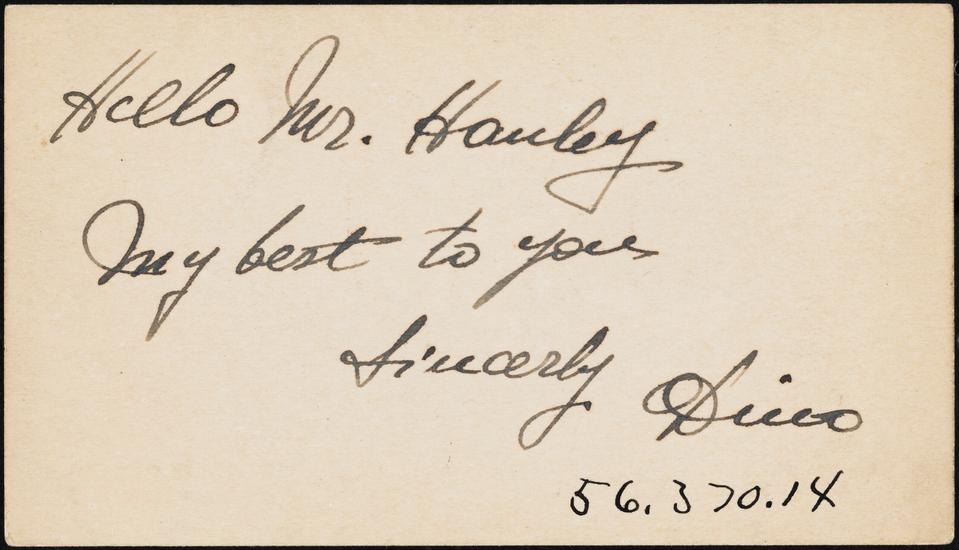 Hello Mr. Hanley
My best to you
Sincerly Dino
56.370.14